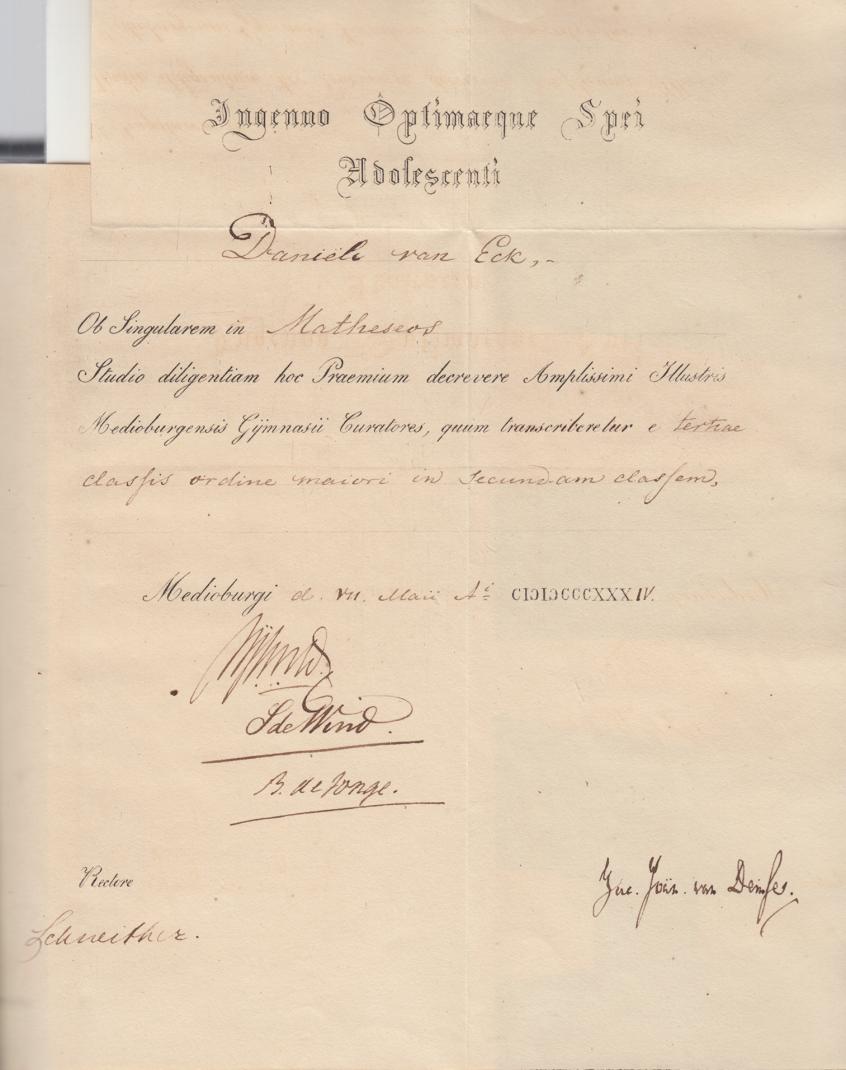 Ingenuo Optimaeque Spei
Adolescenti
Daniëli van Eck,-
Ob Singularem in Matheseos
Studio diligentiam hoc Praemium decrevere Amplissimi Illustris
Medioburgensis Gÿmnasii Curatores, quum transcriberetur e tertiae
classis ordine maiori in secundam classem,
Medioburgi d. VII. Maii Aͥ CIƆIƆCCCXXXIV.
S de Wind.
B. de Jonge.
Rectore
Joän. van
Schneither.